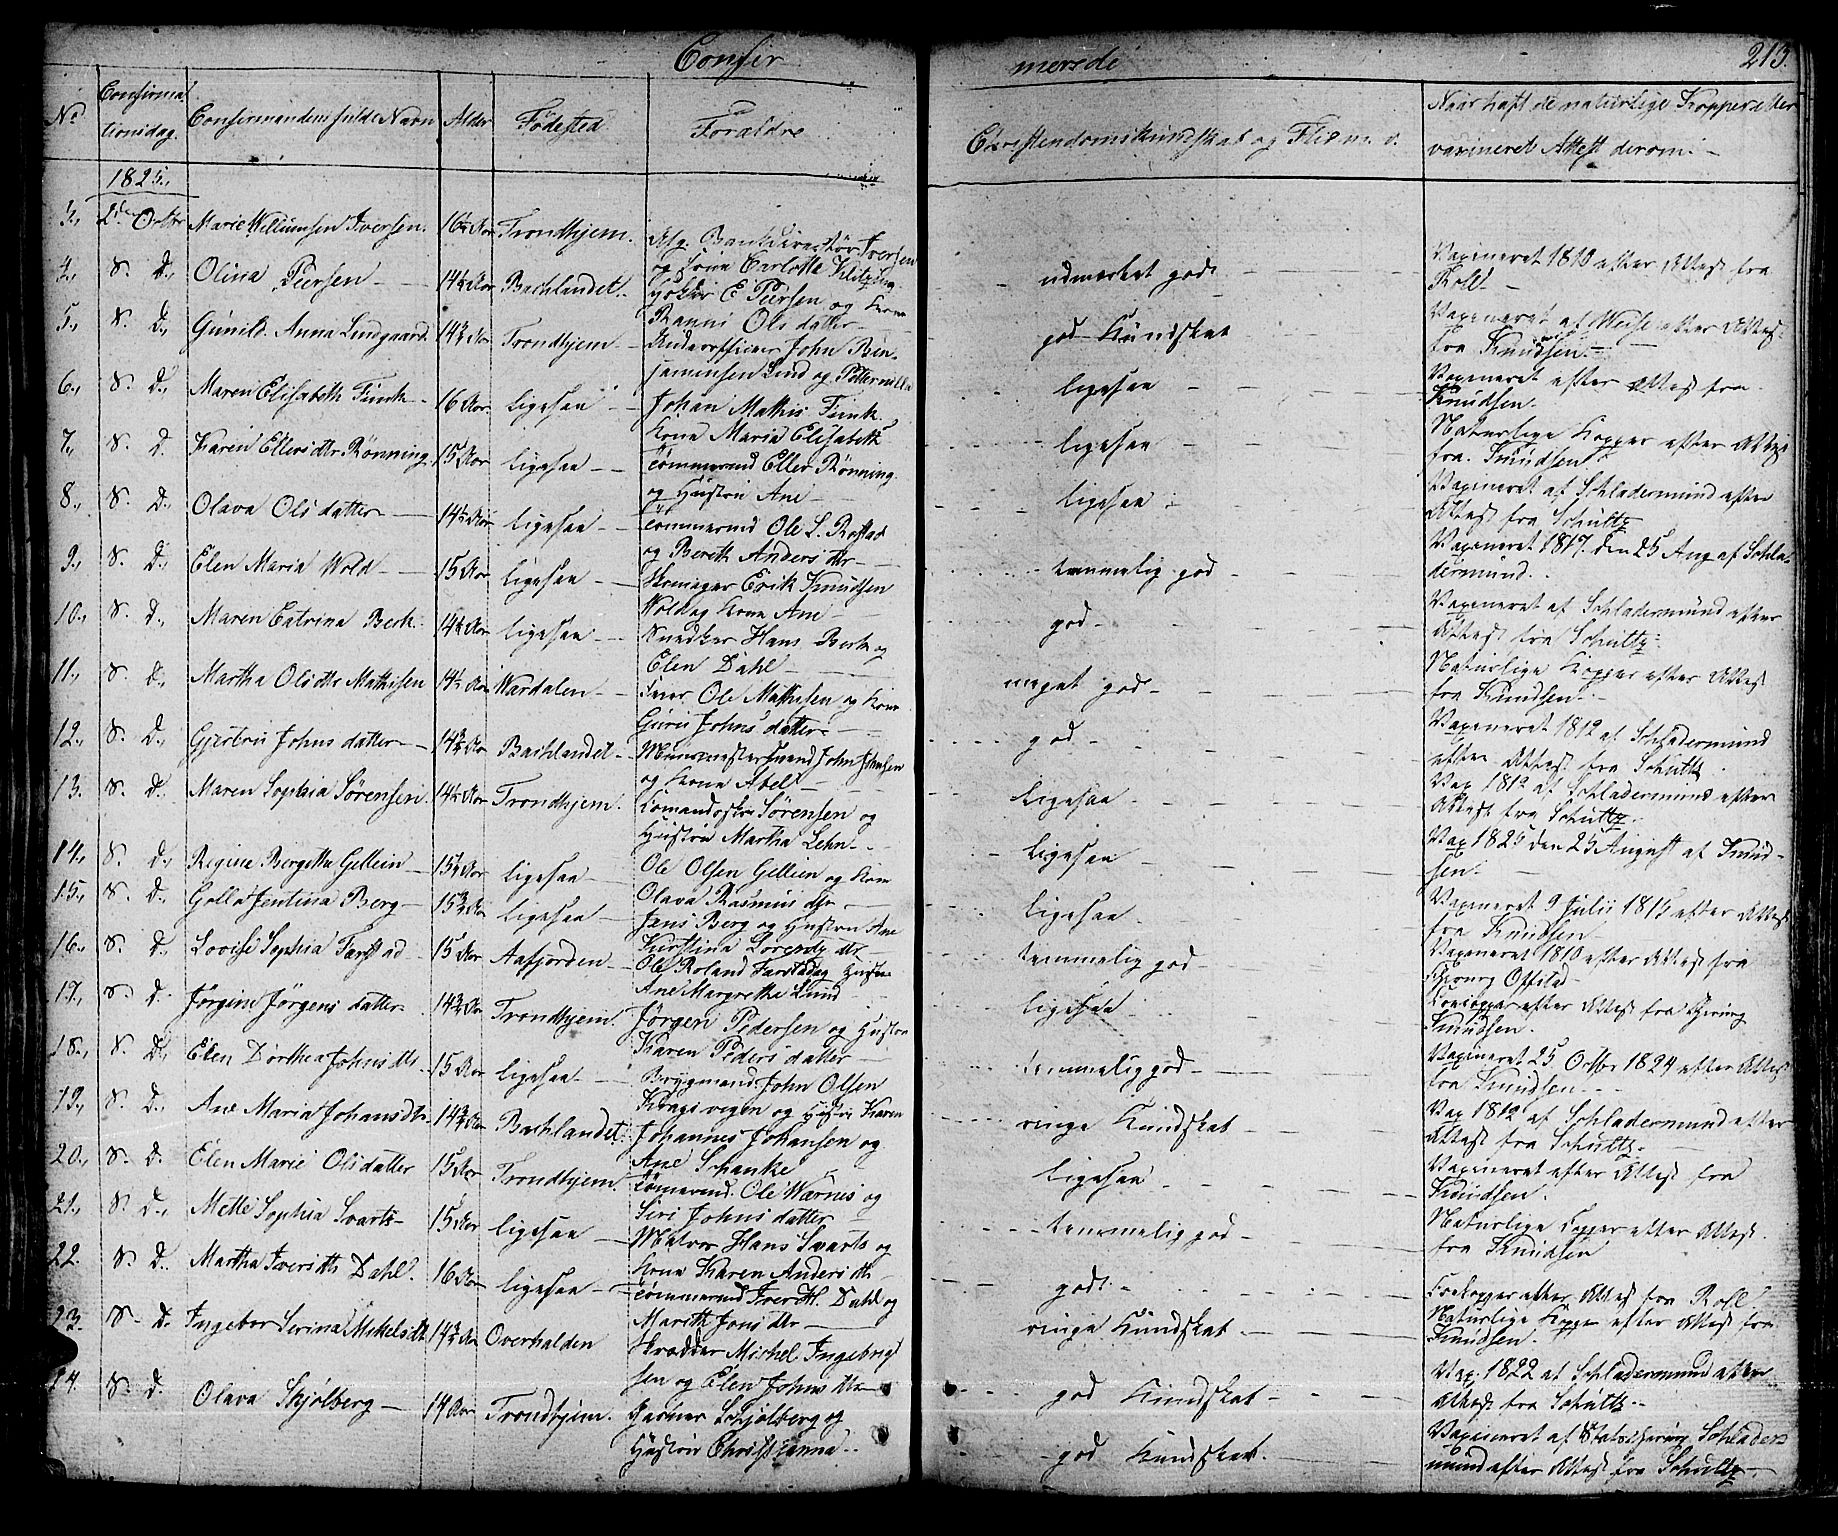 Confir
merede
213.
No
Confirma
tionsdag.
Confirmandens fulde Navn
Alder
Fødested
Forældre
Christendomskundskab og Flid m. v.
Naar haft de naturlige Kopper eller
vaxineret Attest derom.
1825.
3., 2den Octbr Marie Willumsen Iversen. 16½ Aar Trondhjem. Afg. Bankdirectør Iversen
og Frue Carlotte Klitzing
udmærket god.
Vaxineret 1810 efter Attest fra
Roll
4., S. D., Olina Peersen 14½ Aar Bachlandet. E. Peersen og Kone
Ranni Olsdatter
god Kundskab
Vaxineret af Weise efter Attest
fra Knudsen.
5., S. D., Gunild Anna Lindgaard 14¾ Aar Trondhjem Underofficier John Ben-
jaminsen Lind og Petternilla
ligesaa
Vaxineret efter Attest fra
Knudsen.
6., S. D., Maren Elisabeth Funk 16 Aar ligesaa Johan Mathis Funk.
Kone Maria Elisabeth
ligesaa
Naturlige Kopper efter Attest
fra Knudsen.
7., S. D. Karen Ellersdtr Rønning. 15 Aar ligesaa Tømmermd Eller Rønning
og Hustru Ane
ligesaa
Vaxineret af Schladermund efter
Attest fra Schultz
8., S. D., Olava Olsdatter 14½ Aar ligesaa Tømmermd Ole L. Rostad
og Bereth Andersdtr
temmelig god
Vaxineret 1817. den 25 Aug af Schla-
dermund.
9., S. D., Elen Maria Wold 15 Aar ligesaa Skomager Erik Knudsen
Wold og Kone Ane
god
Vaxeneret af Schladermund efter
Attest fra Schultz
10., S. D., Maren Catrina Beck. 14½ Aar ligesaa Snedker Hans Beck og
Elen Dahl
meget god
Naturlige Kopper efter Attest
fra Knudsen.
11., S. D., Martha Olsdtr Mathisen 14½ Aar Wærdalen Ole Mathisen og Kone
Guru Johnsdatter
god
Vaxeneret 1812 af Schladermund
efter Attest fra Schultz
12., S. D., Gjertru Johnsdatter 14¾ Aar Bachlandet Muurmestersvend John Johnsen
og Kone Abel
ligesaa
Vax 1812 af Schladermund efter
Attest fra Schultz.
13. S. D. Maren Sophia Sørensen. 14½ Aar Trondhjem. Sørensen og
Hustru Martha Lehn
ligesaa
Vax 1825 den 25 August af Knud-
sen.
14., S. D., Regine Bergetta Gellein 15½ Aar ligesaa Ole Olsen Gellein og Kone
Olava Rasmusdtr
ligesaa
Vaxeneret 9 Julii 1815 efter Attest
fra Knudsen
15., S. D. Golla Jentina Berg 15¾ Aar ligesaa Jens Berg og Hustru Ane
Kirstina Lorendtz dtr
temmelig god
Vaxineret 1810 efter Attest fra
16., S. D. Lovise Sophia Farstad 15 Aar Aafjorden Ole Roland Farstad og Hustru
Ane Margrethe Lund
ligesaa
Koekopper efter Attest fra Chirurg
Knudsen.
17., S. D. Jørgine Jørgensdatter 14¾ Aar Trondhjem. Jørgen Pedersen og Hustru
Karen Pedersdatter
temmelig god
Vaxineret 25 Octbr 1824 efter Attest
fra Knudsen
18., S. D., Elen Dorthea Johnsdtr 15 Aar ligesaa Brygmand John Olsen
Kragsvegen og Hustru Karen
ringe Kundskab
Vax 1812 af Schladermund efter
Attest fra Schultz.
19., S. D., Ane Maria Johansdtr 14¾ Aar Bachlandet. Johannes Johansen og
Ane Schanke
ligesaa
Vaxeneret efter Attest fra
Knudsen.
20., S. D. Elen Marie Olsdatter 15 Aar Trondhjem. Tømmermd. Ole Wærnes og
Siri Johnsdatter
temmelig god
Naturlige Kopper efter Attest
fra Knudsen
21., S. D., Mette Sophia Svarts 15 Aar ligesaa Hans Svarts og
Kone Karen Andersdtr
god
Koekopper efter Attest fra Roll
22. S. D. Martha Iversdtr Dahl. 16 Aar ligesaa Tømmermd Iver H. Dahl og
Marith Jonsdtr
ringe Kundskab
Naturlige Kopper efter Attest fra
Knudsen.
23. S. D. Ingebor Serina Mikelsdtr 14¾ Aar Overhalden Skrædder Mickel Ingebrigt
sen og Elen Johnsdtr
god Kundskab
Vax. 1822 af Schladermund efter
Attest fra Schultz
24. S. D. Olava Skjølberg 14 Aar Trondhjem. Garver Skjølberg og
Hustru Christianna
god Kundskab.
Vaxineret af Schlader
mund efter Attest fra Schultz